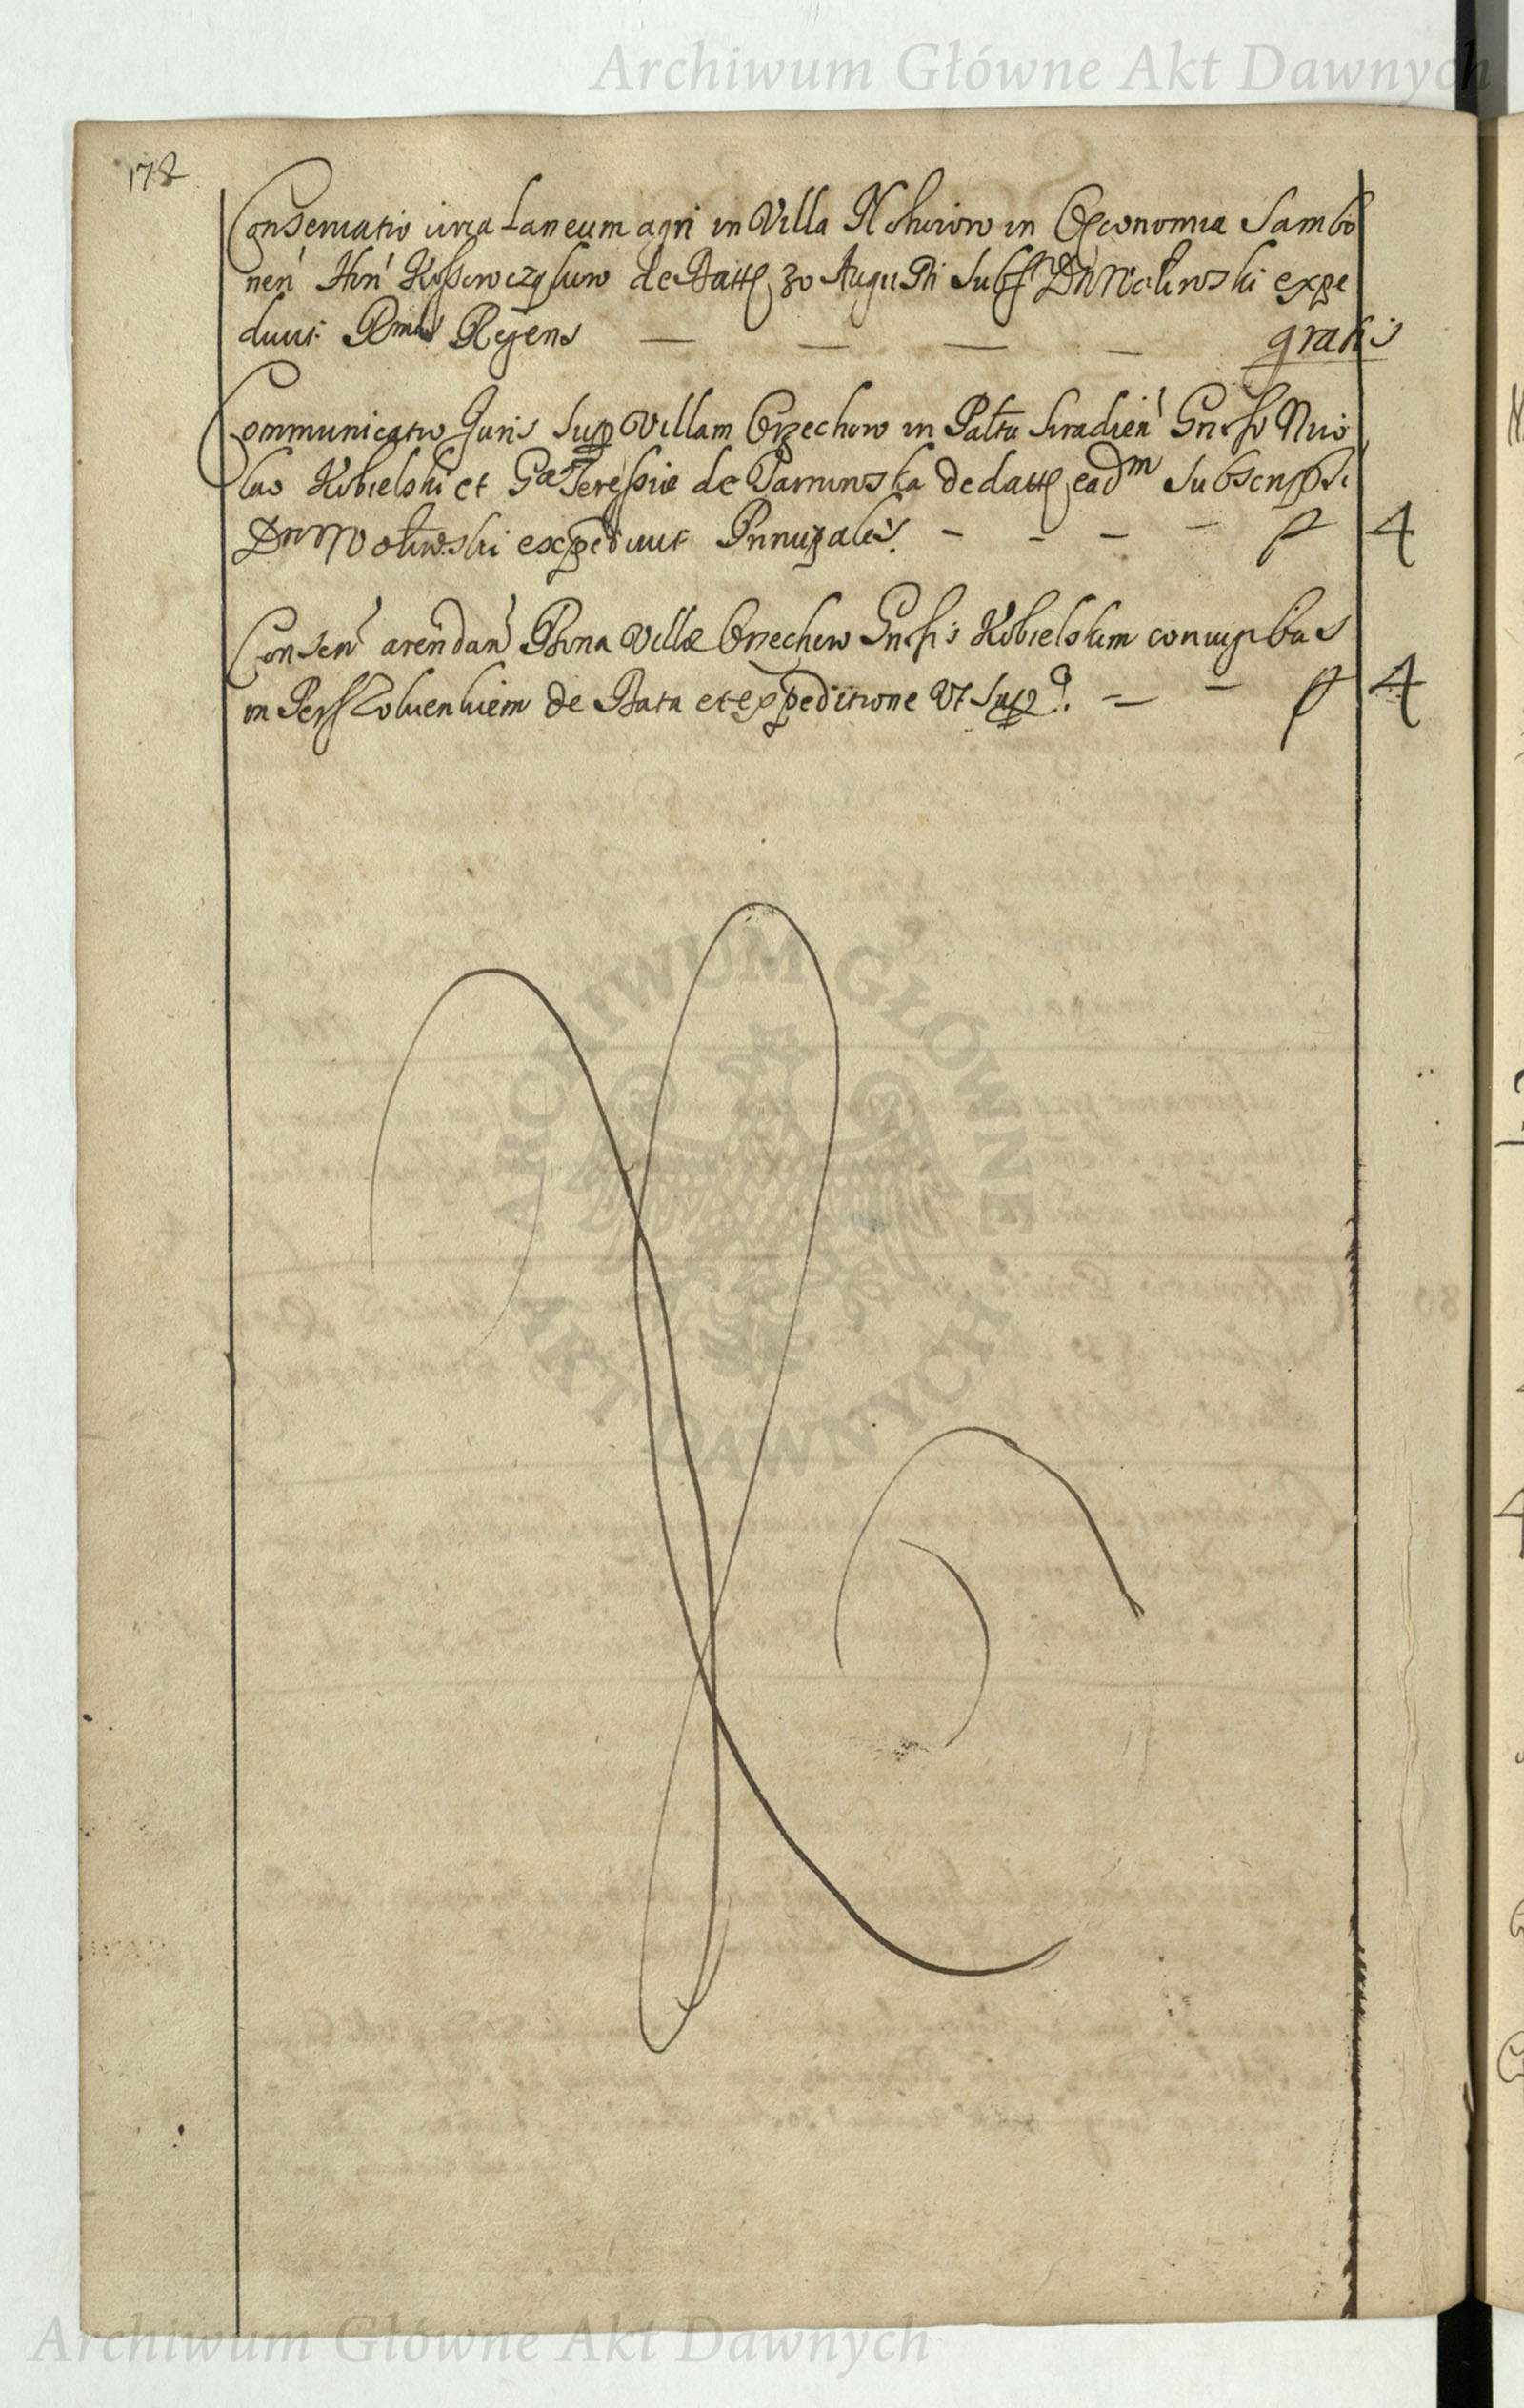 Archiwum Główne Akt Dawnych
178
Conseruatio circa Laneum agri in Villa in Œconomia Sambo
nen̄ Hon̄ de Datt 30 Augusti Subsc Dn Wołowski expe
diuit Rmus Regens — — — — gratis
Communicatio Juris Sup Villam Orzechow in Palttu Siradien̄ Gnoso Nico
lao Kobielski et Gae Teressiæ de de datt ead̄m Subscripsit
Dn Wołowski expediuit Prinicipalis. - - - - f 4
Consen̄ arendan̄ Bona Villæ Orzechow Gnosis Kobielskim coniugibus
in Pers de Data et expeditione Vt Supa. = - f 4
ARCHIWUM GŁÓWNE
AKT DAWNYCH
Archiwum Główne Akt Dawnych